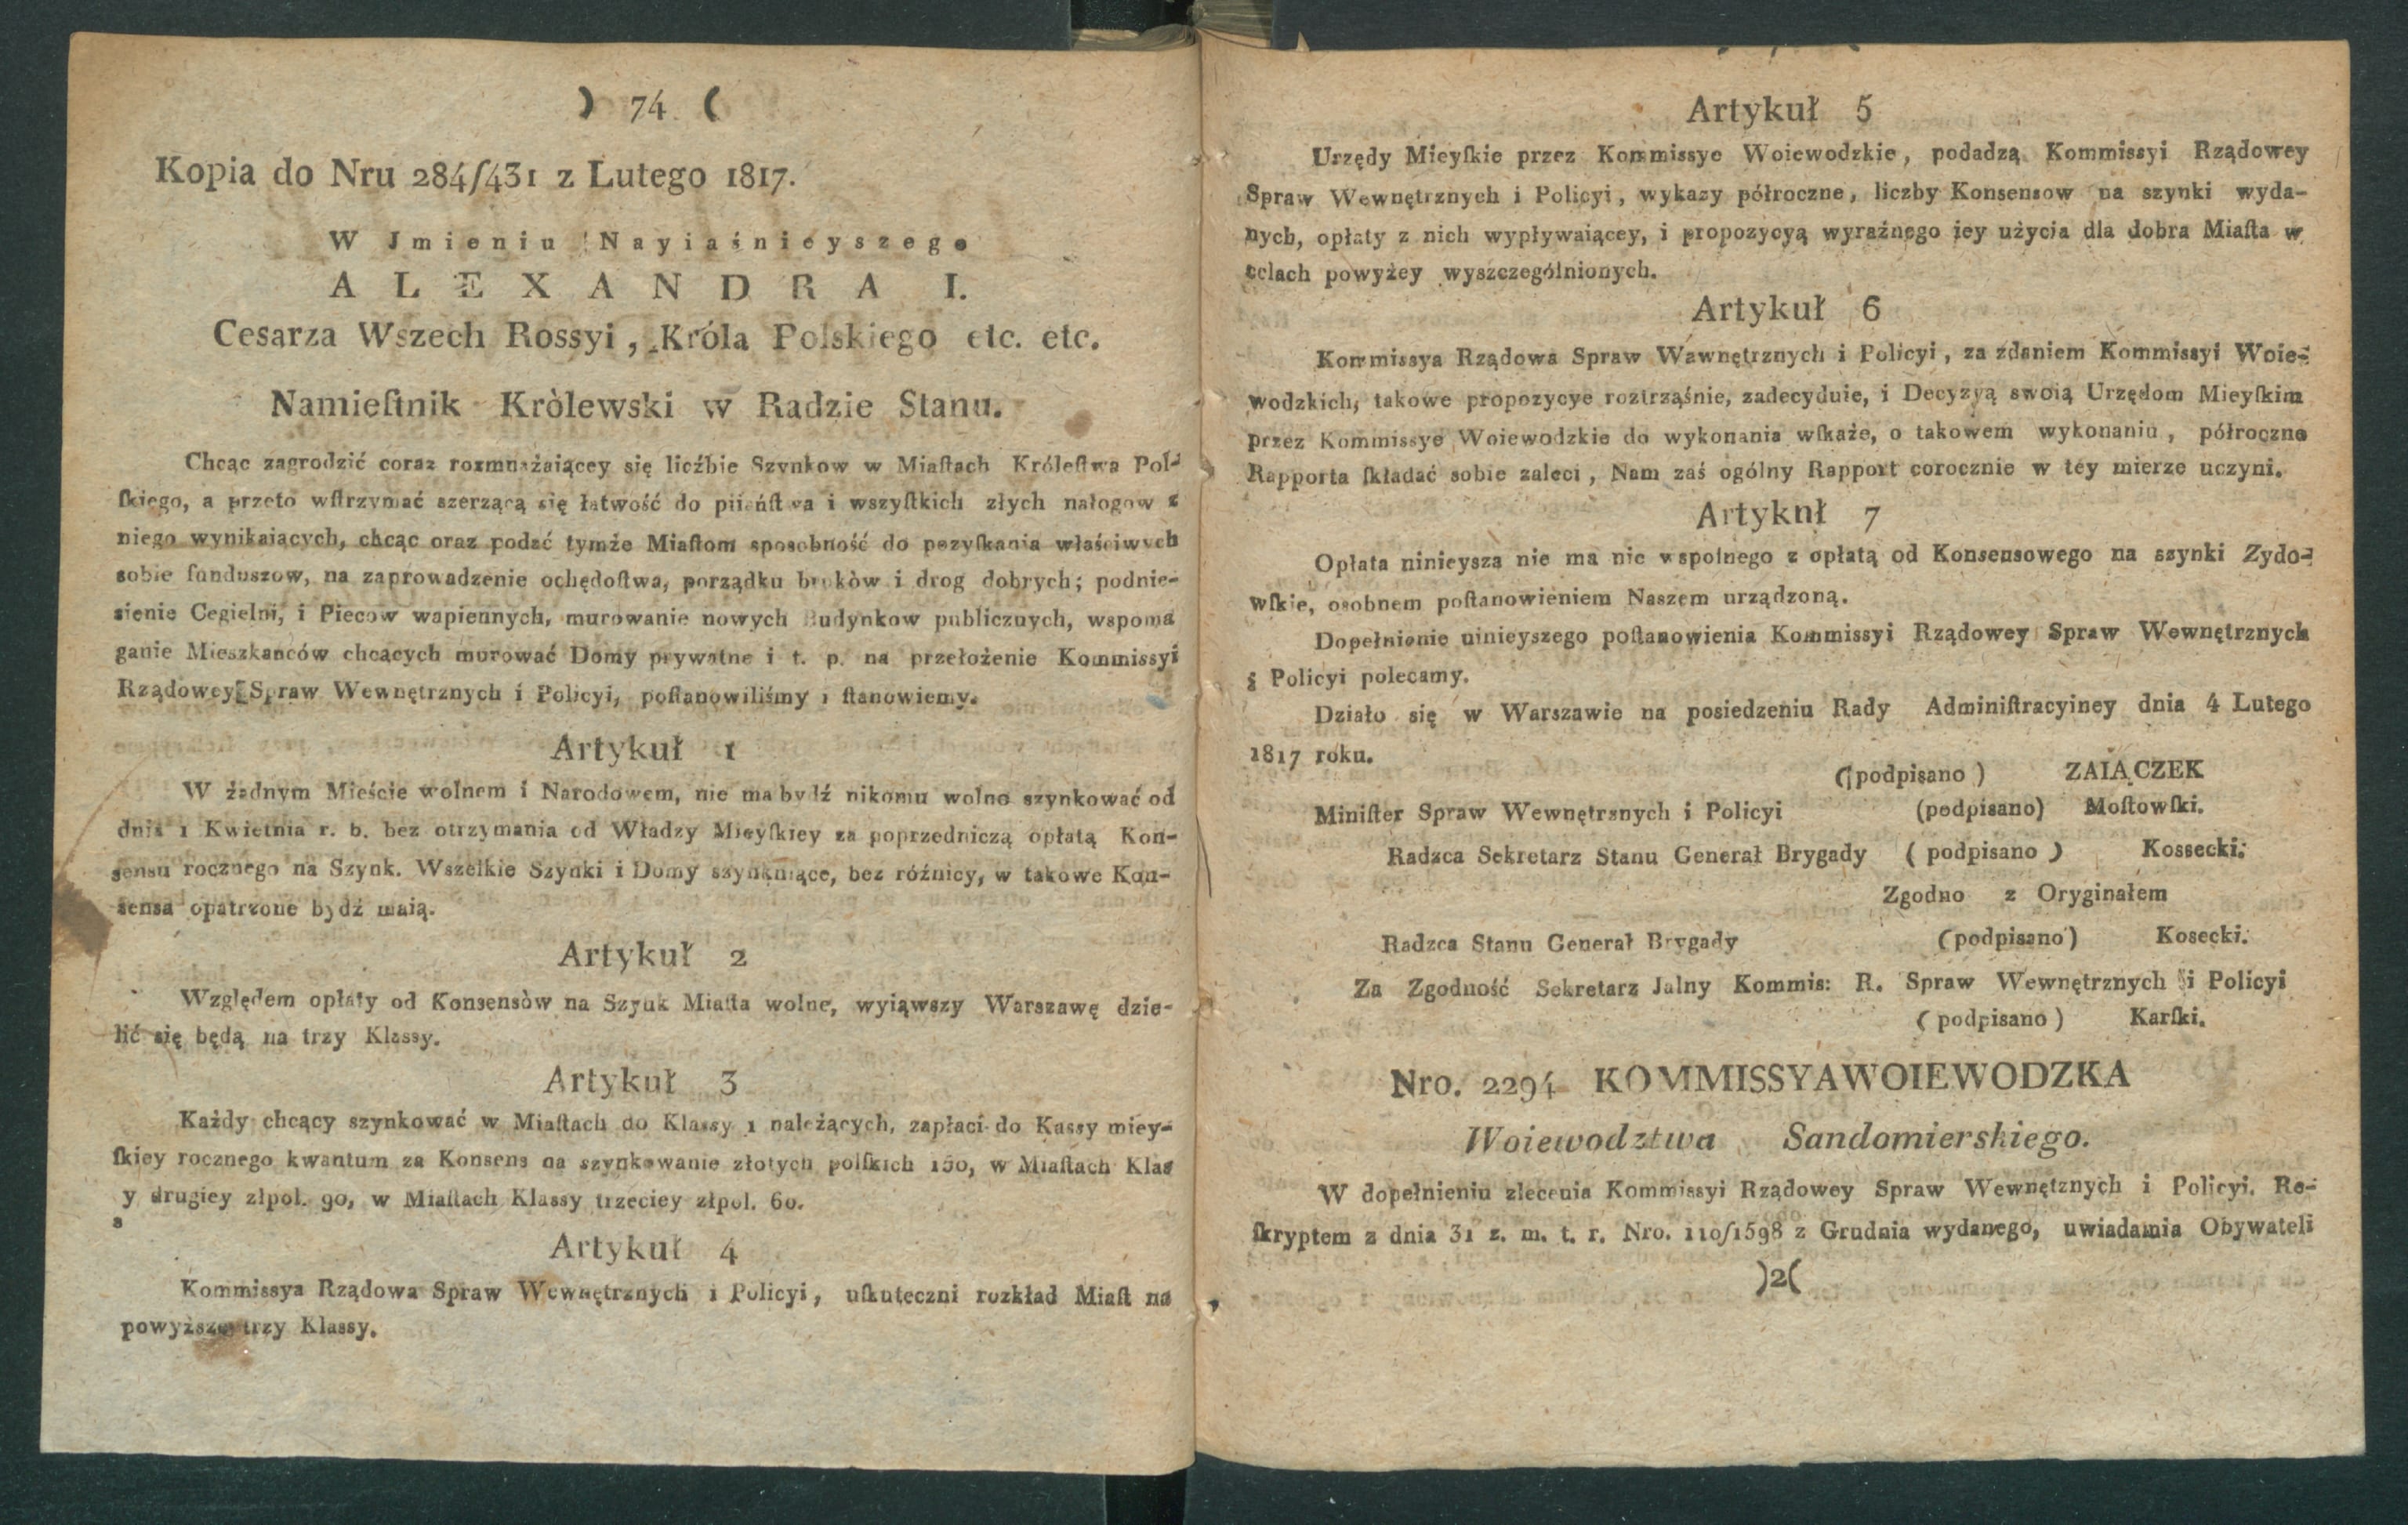 ) 74 (
Kopia do Nru 284/431 z Lutego 1817.
W Jmieniu Nayiaśnieyszego
ALEXANDRA I.
Cesarza Wszech Rossyi, Króla Polskiego etc. etc.
Namieſtnik Kròlewski w Radzie Stanu.
Chcąc zagrodzić coraz rozmnażaiącey się liczbie Szynkow w Miaſtach Króleſtwa Pol-
ſkiego, a przeto wſtrzymać szerzącą się łatwość do piiańſtwa i wszyſtkich złych nałogow z
niego wynikaiących, chcąc oraz podać tymże Miaſtom sposobność do pozyſkania właściwych
sobie funduszow, na zaprowadzenie ochędoſtwa, porządku brukòw i drog dobrych; podnie-
sienie Cegielni, i Piecow wapiennych, murowanie nowych Budynkow publicznych, wspoma
ganie Mieszkańców chcących murować Domy prywatne i t. p. na przełożenie Kommissyi
Rządowey Spraw Wewnętrznych i Policyi, poſtanowiliśmy i ſtanowiemy.
Artykuł 1
W żadnym Mieście wolnem i Narodowem, nie ma bydź nikomu wolno szynkować od
dnia 1 Kwietnia r. b. bez otrzymania od Władzy Mieyſkiey za poprzedniczą opłatą Kon-
sensu rocznego na Szynk. Wszelkie Szynki i Domy szynkuiące, bez różnicy, w takowe Kon-
sensa opatrzone bydź maią.
Artykuł 2
Względem opłaty od Konsensòw na Szynk Miaſta wolne, wyiąwszy Warszawę dzie-
lić się będą na trzy Klassy.
Artykuł 3
Każdy chcący szynkować w Miaſtach do Klassy 1 należących, zapłaci do Kassy miey-
ſkiey rocznego kwantum za Konsens na szynkowanie złotych polſkich 150, w Miaſtach Klas
y drugiey złpol. 90, w Miaſtach Klassy trzeciey złpol. 60.
s
Artykuł 4
Kommissya Rządowa Spraw Wewnętrznych i Policyi, uſkuteczni rozkład Miaſt na
powyższe trzy Klassy.
Artykuł 5
Urzędy Mieyſkie przez Kommissye Woiewodzkie, podadzą Kommissyi Rządowey
Spraw Wewnętrznych i Policyi, wykazy półroczne, liczby Konsensow na szynki wyda-
nych, opłaty z nich wypływaiącey, i propozycyą wyraźnego iey użycia dla dobra Miaſta w
celach powyżey wyszczególnionych.
Artykuł 6
Kommissya Rządowa Spraw Wawnętrznych i Policyi, za zdaniem Kommissyi Woie-
wodzkich, takowe propozycye roztrząśnie, zadecyduie, i Decyzyą swoią Urzędom Mieyſkim
przez Kommissye Woiewodzkie do wykonania wſkaże, o takowem wykonaniu, półroczne
Rapporta ſkładać sobie zaleci, Nam zaś ogólny Rapport corocznie w tey mierze uczyni.
Artyknł 7
Opłata ninieysza nie ma nic wspolnego z opłatą od Konsensowego na szynki Zydo-
wſkie, osobnem poſtanowieniem Naszem urządzoną.
Dopełnienie ninieyszego poſtanowienia Kommissyi Rządowey Spraw Wewnętrznych
i Policyi polecamy.
Działo się w Warszawie na posiedzeniu Rady Adminiſtracyiney dnia 4 Lutego
1817 roku.
(podpisano) ZAIĄCZEK
Miniſter Spraw Wewnętrznych i Policyi (podpisano) Moſtowſki.
Radzca Sekretarz Stanu Generał Brygady (podpisano) Kossecki.
Zgodno z Oryginałem
Radzca Stanu Generał Brygady (podpisano) Kosecki.
Za Zgodność Sekretarz Jalny Kommis: R. Spraw Wewnętrznych i Policyi
(podpisano) Karſki.
Nro. 2294 KOMMISSYAWOIEWODZKA
Woiewodztwa Sandomierskiego.
W dopełnieniu zlecenia Kommissyi Rządowey Spraw Wewnętznych i Policyi. Re-
ſkryptem z dnia 31 z. m. t. r. Nro. 110/1598 z Grudnia wydanego, uwiadamia Obywateli
)2(